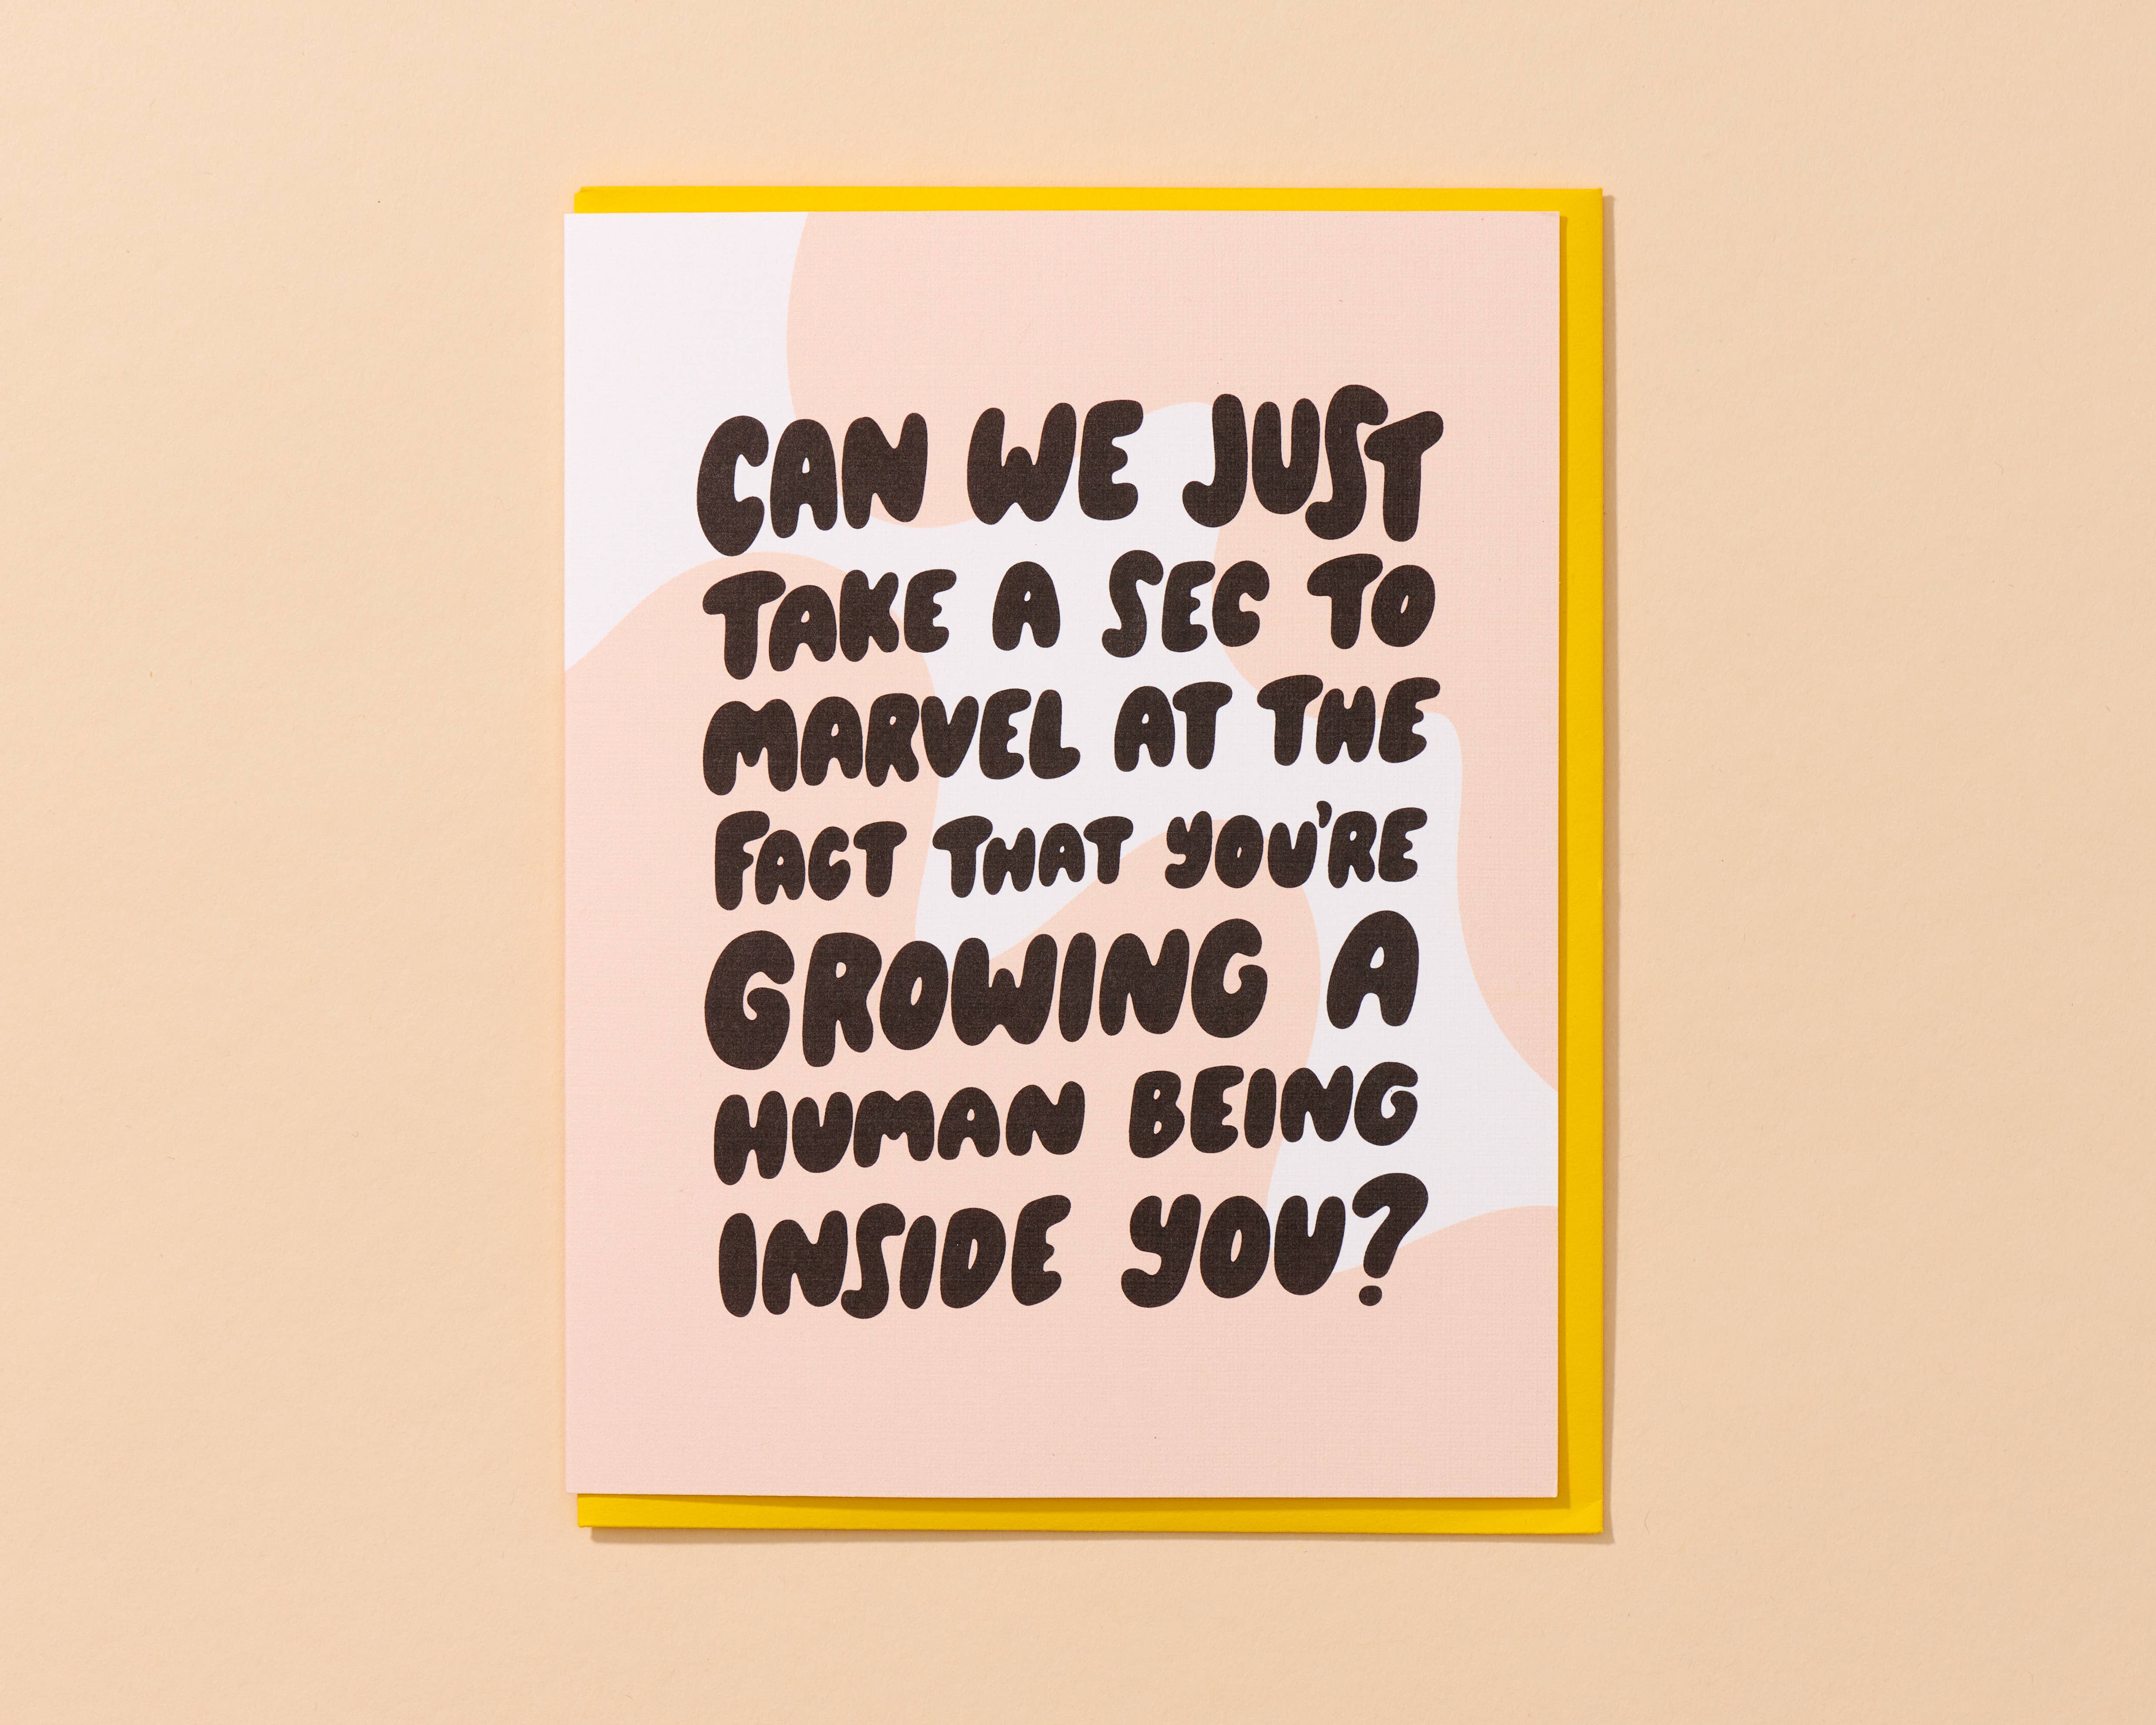 CAN WE JUST
TAKE A SEC TO
MARVEL AT THE
FACT THAT YOU'RE
GROWING A
HUMAN BEING
INSIDE YOU?